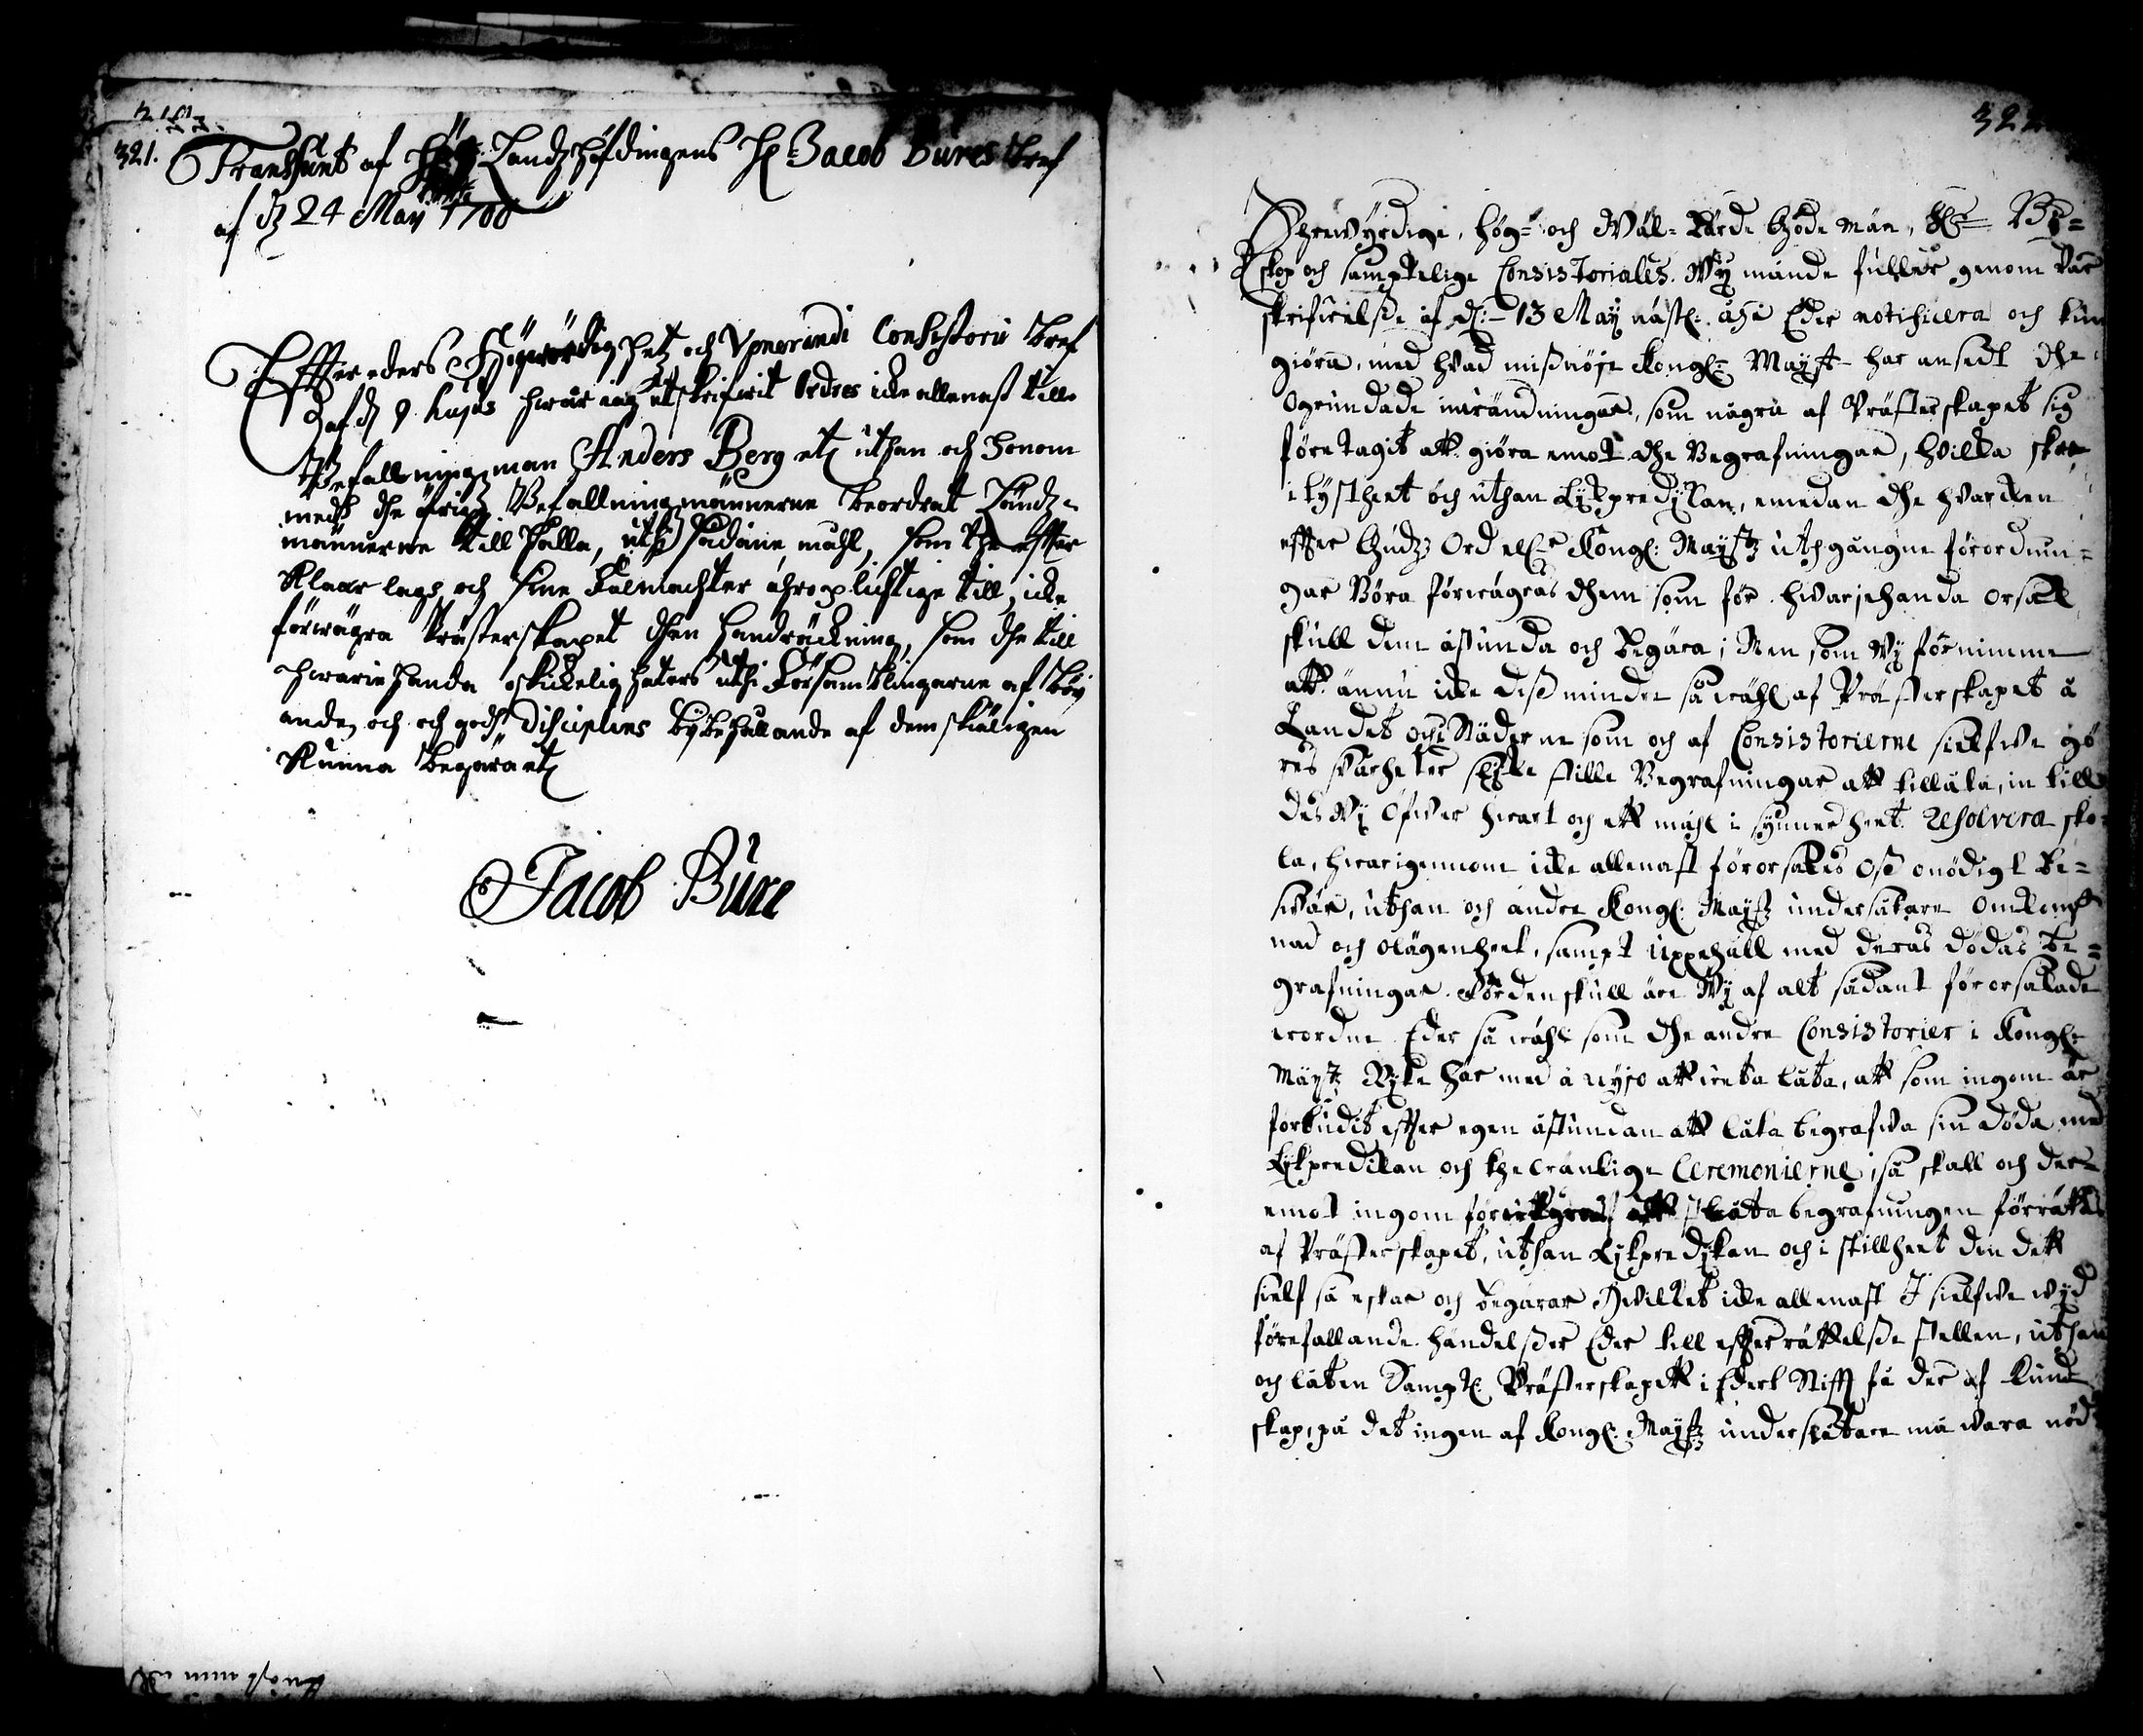 321.
Transsumt af Landzhöfdingens H: Jacob Bures Bref
af d. 24 May 1700
Effter eders Högwördighetz och Venerandi Consistorii Bref
af d. 9 hujus hwar iag utskrifwit Ordres icke allenast till
Befallningzman Anders Berg etc uthan och honom
medh the öfrige Befallningzmännerne beordrat Ländz-
männerne till hålla, uthi sådane mahl, som the effter
Klaar lags och sine Fulmachter ähro plichtige till, icke
förwägra Prästerskapet then handräckning, som the till
hwariehanda oskickeligheters uthi Församblingarne af böj
ande, och och godh Disciplins bijbehållande af dem skiäligen
Kunna begära etc
Jacob Bure
322
Ehrewyrdige, Hög- och Wäl-Lärde Gode Män, Hr Bi-
skop och samptelige Consistoriales. Wij månde fuller genom vår
skrifwelsse af d: 13 May nästl: åhr Eder notificera och kun
giöra, med hvad missnöje Kongl: Mayst har ansedt dhe
ogrundade inwändningar, som någre af Prästerskapet sig
företagit att giöra emot dhe Begrafningar, hvilka skee
i tystheet och uthan Lijkpredijkan, emedan dhe hvarcken
effter Gudz Ord ell:r Kongl: Mayttz uthgångne förordnin-
gar Böra förwägras dhem som för hwarjehanda orsak
skull dem åstunda och begära; Men som Wij förnimme
att ännu icke dess mindre så wähl af Prästerskapet å
Landet och i Städerne som och af Consistorierne sielfwe gö
res swårheter slijke stille Begrafningar att tillåta, in till
des Wij öfwer hwart och ett mahl i synnerheet Resolvera sko-
la, hwarigenom icke allenast förorsakes Oss onödigt be-
swär, uthan och andre Kongl: Mayttz undersåtare omkost
nad och olägenheet, sampt uppehåll med deras dödas be-
grafningar. Fördenskull äre Wij af alt sådant förorsakade
wordne Eder så wähl som dhe andre Consistorier i Kongl:
Mayttz Rijke här med å nyjo att weta låta, att som ingom är
förbudit effter egen åstundan att låta begrafwa sin döda med
Lijkpredikan och the wanlige Ceremonierne, så skall och der-
emot ingom låta begrafningen förrättas
af Prästerskapet, uthan Lijkpredijkan och i stillheet den dett
sielf så eskar och begärar Hwilket icke allenast J sielfwe wijd
förefallande händelsser Eder till effterrättelsse stellen, uthan
och låten Sampt: Prästerskapett i Edert Stifft få der af Kund
skap, på det ingen af Kongl: Mayttz undersåtare må wara nöd